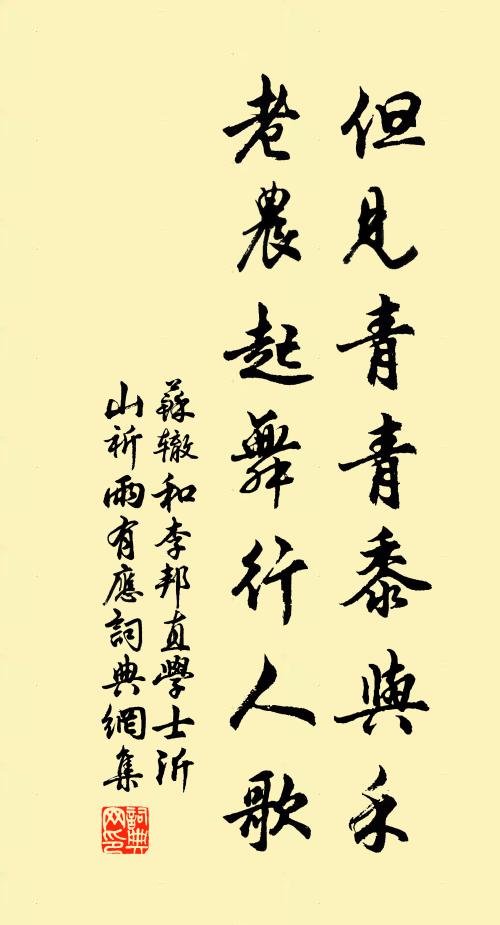 但見青青黍與禾
老農起舞行人歌
蘇轍和李邦直學士沂
山祈雨有應詞典網集
詞典網印